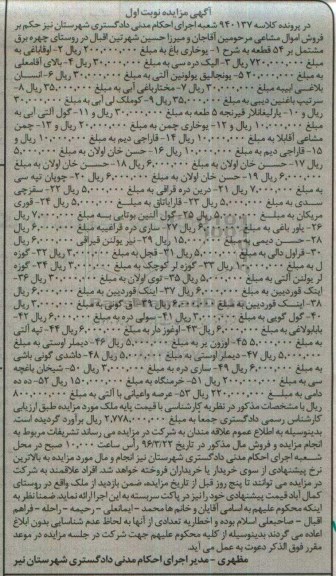 آگهی مزایده نوبت اول
در پرونده کلاسه ۹۴۰۱۳۷ شعبه اجرای احکام مدنی دادگستری شهرستان نیر حکم بر
فروش اموال مشاعی مرحومین آقاجان و میرزا حسین شهرتین اقبال در روستای چهره برق
مشتمل بر ۵۴ قطعه به شرح ۱- یوخاری باغ به مبلغ ۲۰۰,۰۰۰,۰۰۰ ریال ۲- اوقاباغی به
مبلغ ۷۲۰,۰۰۰,۰۰۰ ریال ۳- الیک دره سی به مبلغ ۳۰,۰۰۰,۰۰۰ ریال ۴- بالای آقامعلی
به مبلغ ۲۰,۰۰۰,۰۰۰ ۵- یونجالیق یولونین آلتی به مبلغ ۳۰,۰۰۰,۰۰۰ ریال ۶- انسان
بلاغی لبییه مبلغ ۳۰,۰۰۰,۰۰۰ ریال ۷- مختارباغی آبی به مبلغ ۳۵,۰۰۰,۰۰۰ ریال ۸-
سرتیپ باغنین دیبی به مبلغ ۳۵,۰۰۰,۰۰۰ ریال ۹- کوملک لی آبی به مبلغ ۳۰,۰۰۰,۰۰۰
ریال و ۱۰- یارلیقاتلار قیرنجه ۵ طعه به مبلغ ۳۰,۰۰۰,۰۰۰ ریال و ۱۱- گول آلتی آبی به
مبلغ ۱۰۰,۰۰۰,۰۰۰ ریال و ۱۲- یوخاری چمن به مبلغ ۲۰۰,۰۰۰,۰۰۰ ریال و ۱۳- چمن
مشاعی آقابلا به مبلغ ۱۰,۰۰۰,۰۰۰ ریال ۱۴- قاراجی دیم به مبلغ ۱۰,۰۰۰,۰۰۰ ریال و
۱۵- قاراجی دیم به مبلغ ۱۱,۰۰۰,۰۰۰ ریال ۱۶- حسن خان اولان به مبلغ ۵,۰۰۰,۰۰۰
ریال ۱۷- حسن خان اولان به مبلغ ۶,۰۰۰,۰۰۰ ریال ۱۸- حسن خان اولان به مبلغ
۶,۰۰۰,۰۰۰ ریال ۱۹- حسن خان اولان به مبلغ ۶,۰۰۰,۰۰۰ ریال ۲۰- چوپان تپه سی
به مبلغ ۷,۰۰۰,۰۰۰ ریال ۲۱- درین دره قراقی به مبلغ ۵,۰۰۰,۰۰۰ ریال ۲۲- سقزچی
سدی به مبلغ ۵,۰۰۰,۰۰۰ ریال ۲۳- قارایاتاق به مبلغ ۵,۰۰۰,۰۰۰ ریال ۲۴- قوری
مریکان به مبلغ ۵,۰۰۰,۰۰۰ ریال ۲۵- گول آلتین بوتایی به مبلغ ۷,۰۰۰,۰۰۰ ریال
۲۶- یاور باغی به مبلغ ۶,۰۰۰,۰۰۰ ریال ۲۷- ساری دره قراقیبه مبلغ ۶,۰۰۰,۰۰۰ ریال
۲۸- حسن دیمی به مبلغ ۱۵,۰۰۰,۰۰۰ ریال ۲۹- نیر یولنن قیراقی ۶,۰۰۰,۰۰۰ ریال
۳۰- قراول دالی به مبلغ ۵,۰۰۰,۰۰۰ ریال ۳۱- قجل به مبلغ ۳,۰۰۰,۰۰۰ ریال ۳۲- کوزه
ل به مبلغ ۱۰,۰۰۰,۰۰۰ ریال ۳۳- کوزه لر کوچک به مبلغ ۳,۰۰۰,۰۰۰ ریال ۳۴- کوزه
لر یولنن آلتی به مبلغ ۵,۰۰۰,۰۰۰ ریال ۳۵- توی اولان به مبلغ ۳,۰۰۰,۰۰۰ ریال ۳۶-
اینک قوردیین به مبلغ ۶,۰۰۰,۰۰۰ ریال ۳۷- اینک قوردیین به مبلغ ۶,۰۰۰,۰۰۰ ریال
۳۸- اینک قوردیین به مبلغ ۶,۰۰۰,۰۰۰ ریال ۳۹- گول گونی به مبلغ ۳,۰۰۰,۰۰۰ ریال
۴۰- گول گویی به مبلغ ۳,۰۰۰,۰۰۰ ریال ۴۱- سولی دره به مبلغ ۶,۰۰۰,۰۰۰ ریال ۴۲-
بابابولاغی به مبلغ ۶,۰۰۰,۰۰۰ ریال ۴۳- اوغوز دار به مبلغ ۶,۰۰۰,۰۰۰ ریال ۴۴- تپه آلتی
به مبلغ ۵,۰۰۰,۰۰۰ ۴۵- اوزون یر به مبلغ ۵,۰۰۰,۰۰۰ ریال ۴۶- دیمار اوستی به مبلغ
۵,۰۰۰,۰۰۰ ریال ۴۷- دیمار اوستی به مبلغ ۵,۰۰۰,۰۰۰ ریال ۴۸- داشدی گونی باشی
به مبلغ ۶,۰۰۰,۰۰۰ ریال ۴۹- ساری دره به مبلغ ۳,۰۰۰,۰۰۰ ریال ۵۰- شیخان باغچه
سی به مبلغ ۲۰۰,۰۰۰,۰۰۰ ریال ۵۱- خرمنگاه به مبلغ ۱۵۰,۰۰۰,۰۰۰ ریال ۵۲- ده ده
دامی به مبلغ ۲۲۰,۰۰۰,۰۰۰ ریال ۵۳- عرصه واعیانی با آلتی به مبلغ ۸۰۰,۰۰۰,۰۰۰
ریال با مشخصات مذکور در نظریه کارشناسی با قیمت پایه ملک مورد مزایده طبق ارزیابی
کارشناس رسمی دادگستری جمعا به مبلغ ۲,۷۷۸,۰۰۰,۰۰۰ ریال برآورد گردیده است.
بدینوسیله به اطلاع عموم علاقه مندان به شرکت در مزایده می رساند تشریفات مربوط به
انجام مزایده و فروش مال مذکور در تاریخ ۹۶/۳/۲۲ راس ساعت ۱۰:۰۰ صبح در محل
شعبه اجرای احکام مدنی دادگستری شهرستان نیر انجام و مال مورد مزایده به بالاترین
نرخ پیشنهادی از سوی خریدار یا خریداران فروخته خواهد شد. افراد علاقمند به شرکت
در مزایده می توانند تا پنج روز قبل از تاریخ مزایده، ضمن بازدید از ملک واقع در روستای
کمال آباد قیمت پیشنهادی خود را نیز در پاکت سربسته به این اجرا ارائه نماید، ضمنا نظر به
اینکه محکوم علیهم به اسامی آقایان و خانم ها محمد - ایمانعلی - رحیمه - راحله - فراهم
اقبال - صاحبعلی اسلام بوده و اخطاریه تعدادی از آنها به لحاظ عدم شناسایی بدون ابلاغ
اعاده می گردند بدینوسیله از کلیه محکوم علیهم جهت شرکت در جلسه مزایده در موعد
مقرر فوق الذکر دعوت به عمل می آید.
مظهری - مدیر اجرای احکام مدنی دادگستری شهرستان نیر